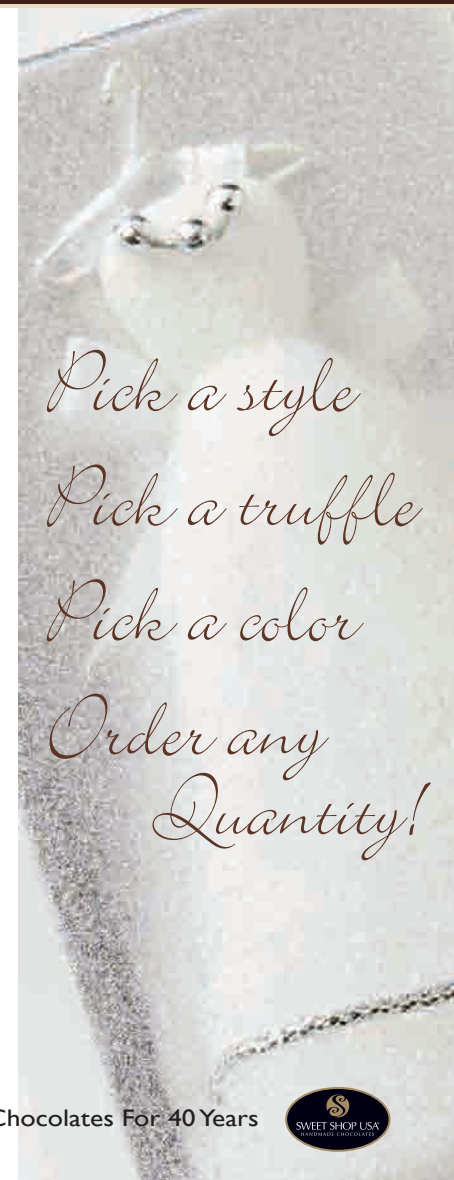 Pick a style
Pick a truffle
Pick a color
Order any
Quantity!
Chocolates For 40 Years
SWEET SHOP USA
HANDMADE CHOCOLATES